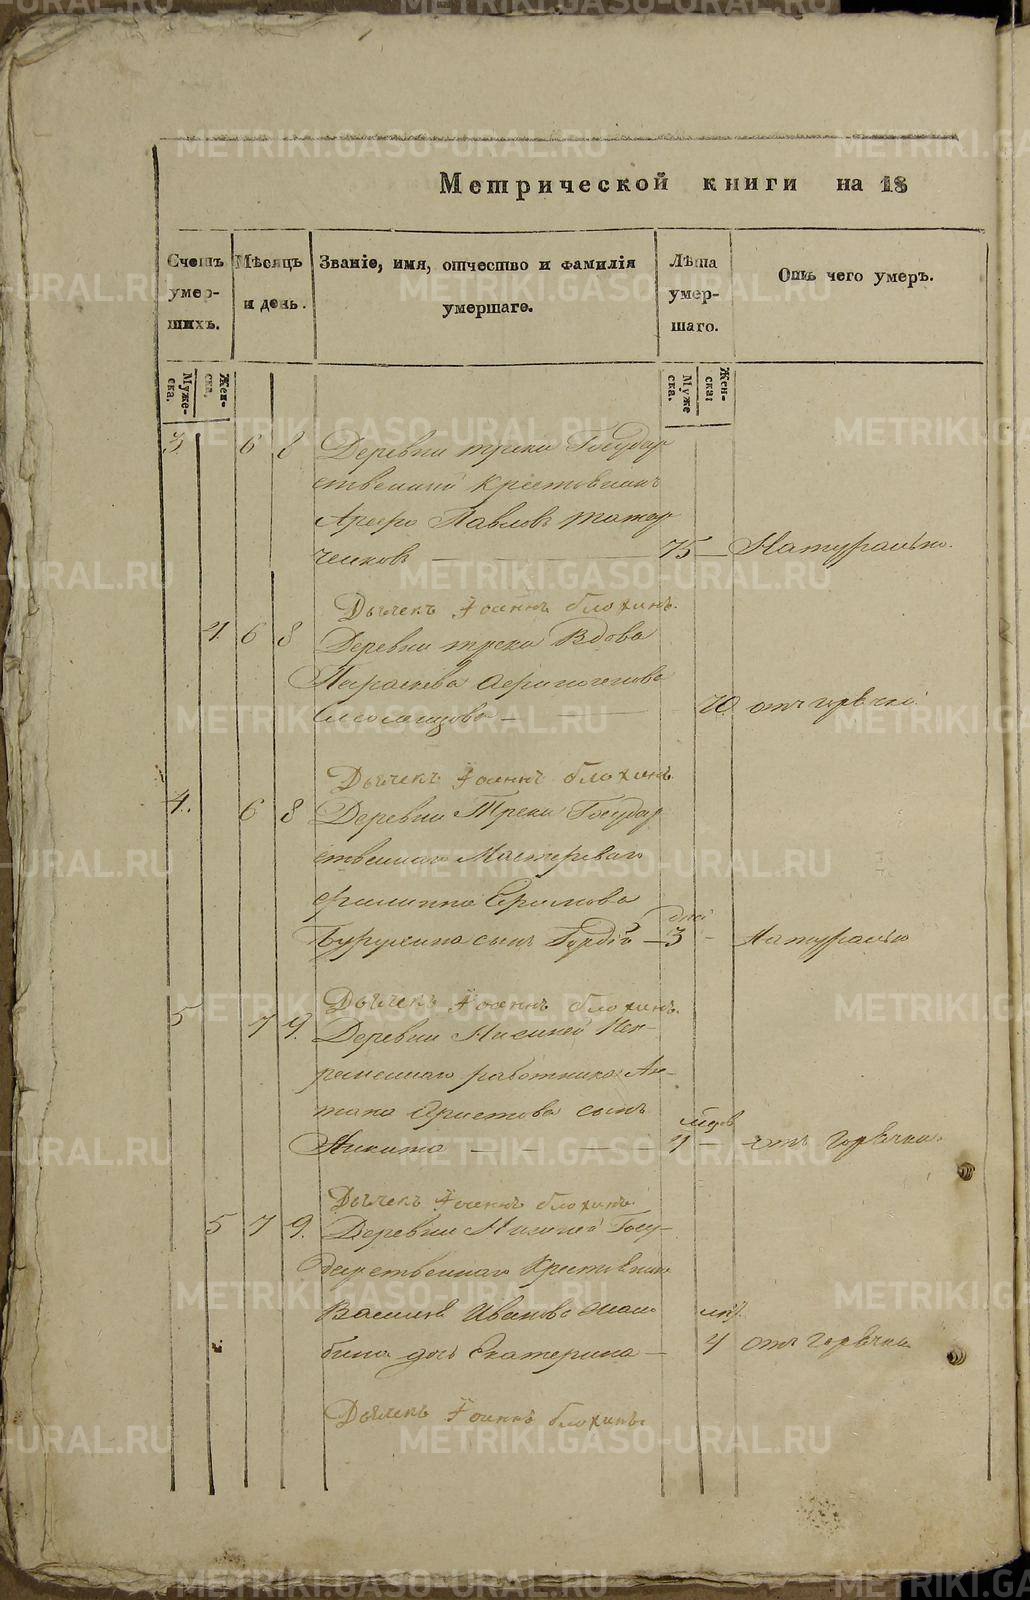 Метрической книги на 18
Счетъ умершихъ.
Мѣсяцъ и день.
Званіе, имя, отчество и фамилія умершаго.
Лѣта умершаго.
Отъ чего умеръ.
Мужеска.
Женска.
Муже ска.
Женска:
3 6 8 Деревни треки Государ
ственный крестьянинъ
Павловъ
75 Натурально.
Дьячекъ Іоаннъ блохинъ.
4. 6 8 Деревни треки Вдова
Параскева
70 отъ горячки
Дьячекъ Іоаннъ блохинъ
4. 6 8 Деревни Треки Государ
ственнаго Мастероваго
филиппа
сынъ Гурдій дней 3 Натурально
Дьячекъ Іоаннъ блохинъ.
5 7 9. Деревни Нижней Неп-
ременнаго работника Ан-
сынъ
Никита 1 отъ горячки.
Дьячекъ Іоаннъ блохинъ
5 7 9. Деревни Нижней Госу-
дарственнаго Крестьянина
Василья Иванова
дочь Екатерина 4 отъ горячки
Дьячекъ Іоаннъ блохинъ.
METRIKI.GASO-URAL.RU